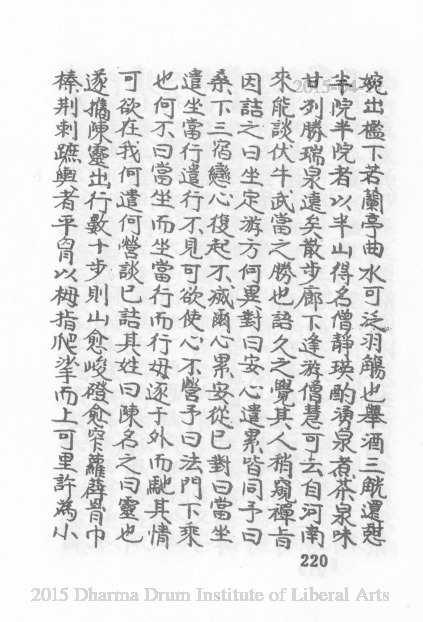 婉出檻下若蘭亭曲水可泛羽觴也舉酒三觥還憩
半院半院者以半山得名僧靜瑛酌湧泉煮茶泉味
甘冽勝瑞泉遠矣散步廊下逢游僧慧可云自河南
來能談伏牛武當之勝也語久之覺其人稍窺禪旨
因詰之曰坐定游方何異對曰安心遣累皆同予曰
桑下三宿戀心復起不滅爾心累安從已對曰當坐
遣坐當行遣行不見可欲使心不營予曰法門下乘
也何不曰當坐而坐當行而行毋逐于外而馳其情
可欲在我何遣何營談已詰其姓曰陳名之曰靈也
遂攜陳靈出行數十步則山愈峻磴愈窄蘿薜罥巾
榛荊刺蹠輿者平肩以拇指爬挲而上可里許為小
220
2015 Dharma Drum Institute of Liberal Arts